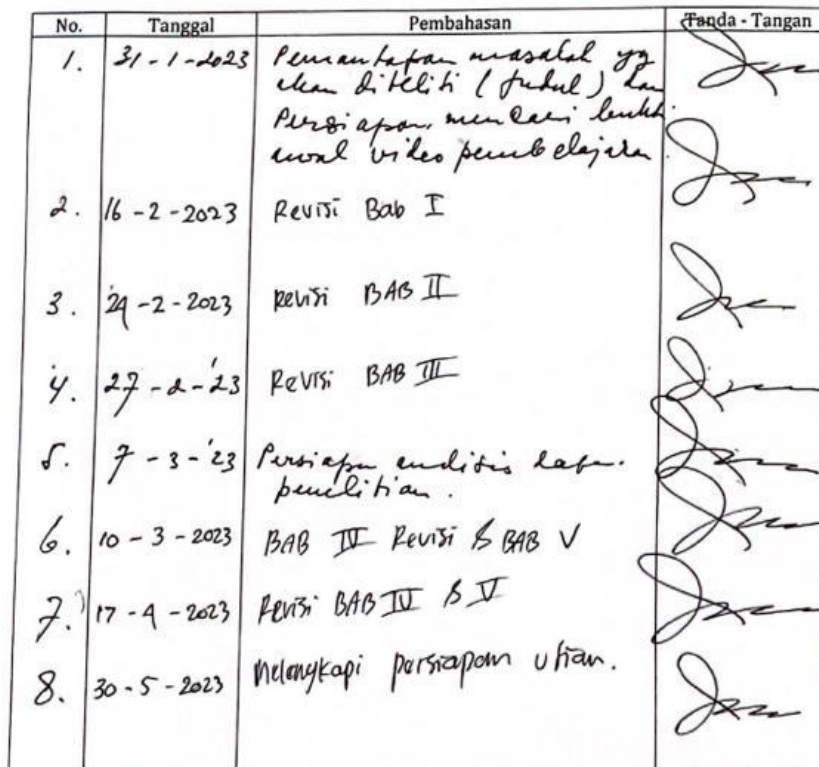 No. Tanggal Pembahasan Tanda - Tangan
1. 31 - 1 - 2023 Pemantapan masalah yg
akan diteliti (judul) dan
Persiapan mencari bukti
awal video pembelajaran
2. 16 - 2 - 2023 Revisi Bab I
3. 24 - 2 - 2023 Revisi BAB II
4. 27 - 2 - '23 Revisi BAB III
5. 7 - 3 - '23 Persiapan analisis
penelitian.
6. 10 - 3 - 2023 BAB IV Revisi & BAB V
7. 17 - 4 - 2023 Revisi BAB IV & V
8. 30 - 5 - 2023 Melengkapi persiapan ujian.